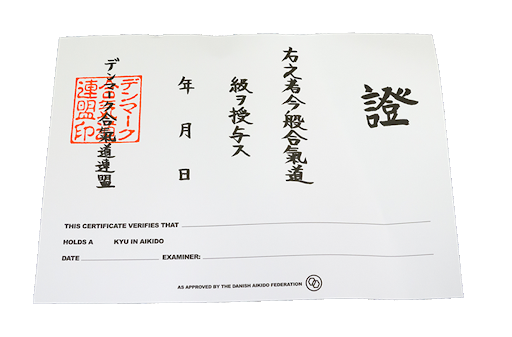 證
右之者今般合氣道
級ヲ授与ス
年 月 日
デンマーク合氣道連盟
デンマーク
連盟印
THIS CERTIFICATE VERIFIES THAT
HOLDS A KYU IN AIKIDO
DATE EXAMINER:
AS APPROVED BY THE DANISH AIKIDO FEDERATION